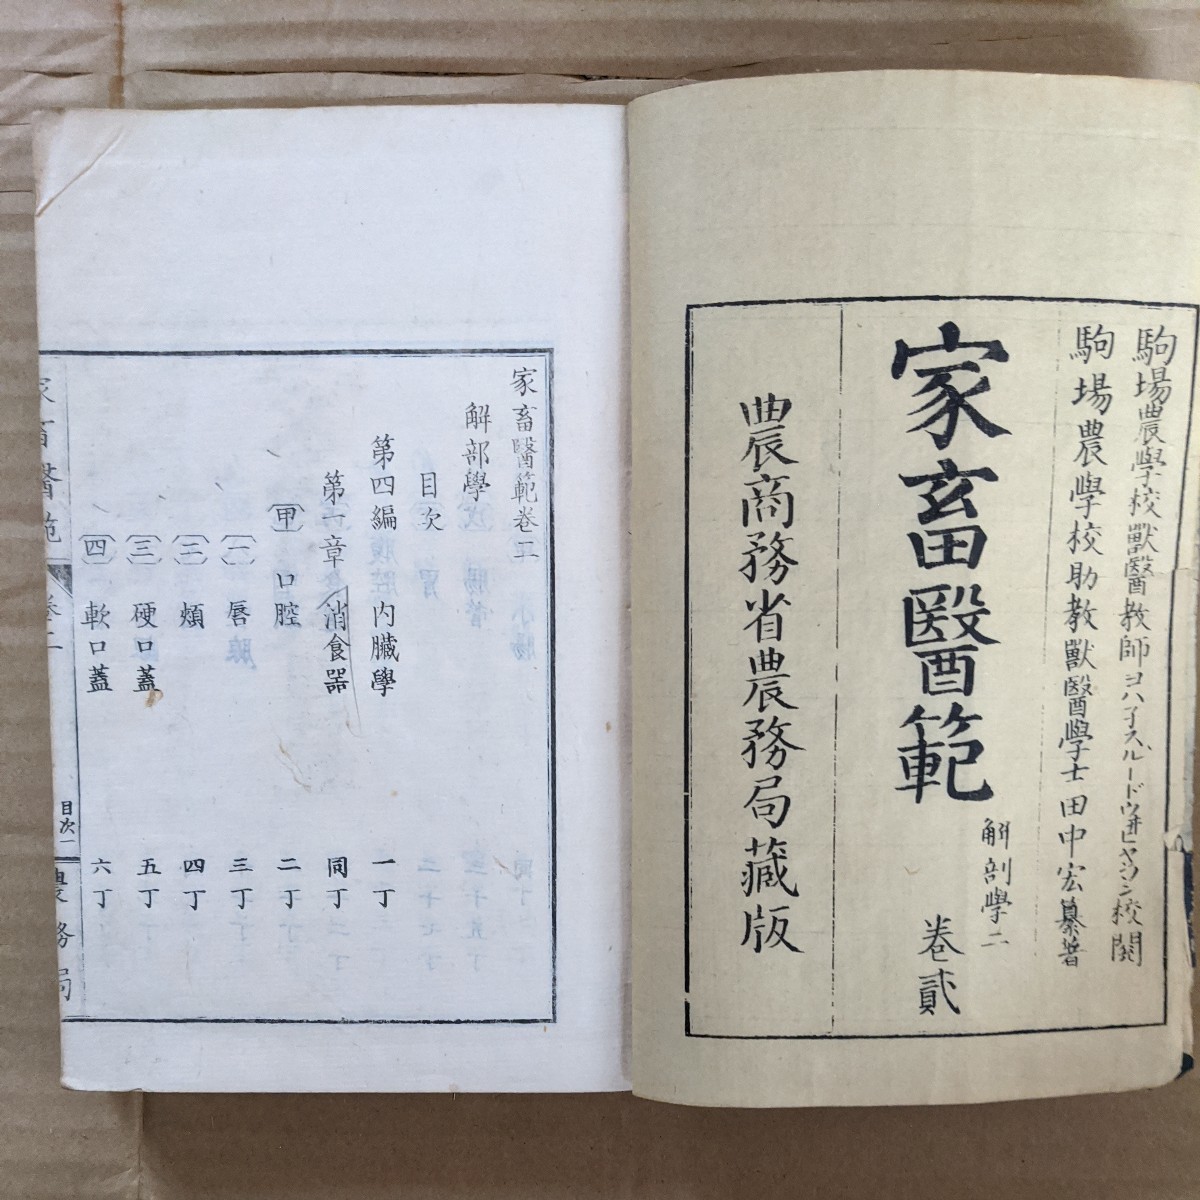 駒場農學校獸醫教師ヨハ子スルードウ井ヒヤンソン校閲
駒場農學校助教獸醫學士田中宏纂著
家畜醫範
解剖學二
卷貳
農商務省農務局藏版
家畜醫範卷二
解部學
目次
第四編 內臟學 一丁
第一章 消食器 同丁
甲 口腔 二丁
(一) 唇 三丁
(二) 頰 四丁
(三) 硬口蓋 五丁
(四) 軟口蓋 六丁
家畜醫範 卷二 目次一 農務局